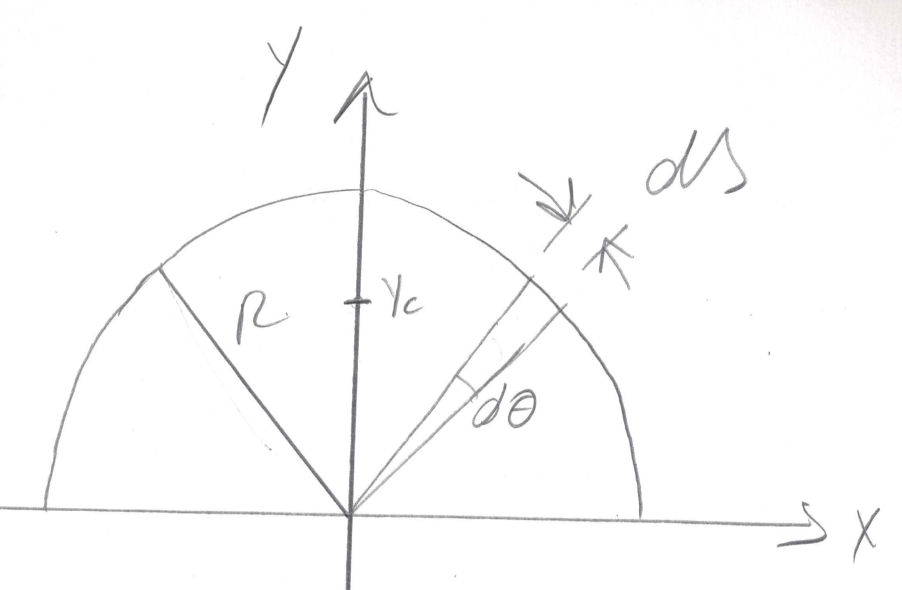 Y
ds
R
Yc
dθ
X